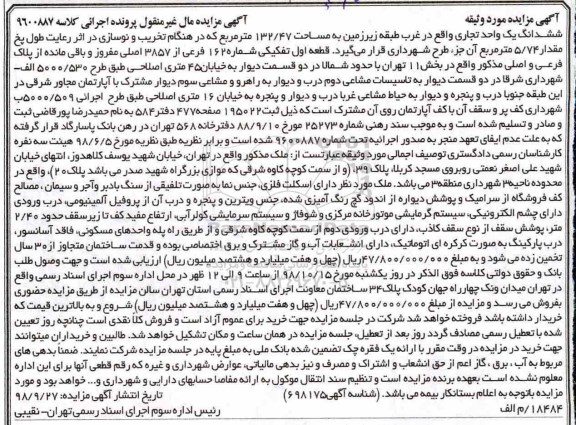 آگهی مزایده مورد وثیقه
آگهی مزایده مال غیرمنقول پرونده اجرائی کلاسه ۹۶۰۰۸۸۷
ششدانگ یک واحد تجاری واقع در غرب طبقه زیرزمین به مساحت ۱۳۲/۴۷ مترمربع که در هنگام تخریب و نوسازی در اثر رعایت طول پخ
مقدار ۵/۷۴ مترمربع آن جزء طرح شهرداری قرار می‌گیرد. قطعه اول تفکیکی شماره ۱۶۲ فرعی از ۳۸۵۷ اصلی مفروز و باقی مانده از پلاک
فرعی و اصلی مذکور واقع در بخش ۱۱ تهران با حدود شمالا در دو قسمت دیوار به خیابان ۴۵ متری اصلاحی طبق طرح ۵۰۰۰/۵۳۰ الف-
شهرداری شرقا در دو قسمت دیوار به تاسیسات مشاعی دوم درب و دیوار به راهرو و مشاعی سوم دیوار مشترک با آپارتمان مجاور شرقی در
این طبقه جنوبا درب و پنجره و دیوار به حیاط مشاعی غربا درب و دیوار و پنجره به خیابان ۱۶ متری اصلاحی طبق طرح اجرائی ۵۰۰۰/۵۰۹ب
شهرداری کف پر و سقف آن با کف آپارتمان روی آن مشترک است که ذیل ثبت ۱۹۵۰۲۲ صفحه ۴۷۷ دفتر ۵۸۴ به نام حمیدرضا پورقاضی ثبت
و صادر و تسلیم شده است و به موجب سند رهنی شماره ۲۵۲۷۳ مورخ ۸۸/۹/۱۰ دفترخانه ۵۶۸ تهران در رهن بانک پاسارگاد قرار گرفته
که به علت عدم ایفای تعهد منجر به صدور اجرائیه تحت شماره ۹۶۰۰۸۸۷ شده است و برابر نظریه طبق نظریه مورخ ۹۸/۶/۵ هیئت سه نفره
کارشناسان رسمی دادگستری توصیف اجمالی مورد وثیقه عبارتست از: ملک مذکور واقع در تهران، خیابان شهید یوسف کلاهدوز، انتهای خیابان
شهید علی اصغر نعمتی روبروی مسجد کربلا، پلاک ۳۹، (و از سمت کوچه کاوه شرقی که موازی بزرگراه شهید صدر می باشد پلاک ۲۰)، واقع در
محدوده ناحیه ۳ شهرداری منطقه ۳ می باشد. ملک مورد نظر دارای اسکلت فلزی، جنس نما به صورت تلفیقی از سنگ بادبر وآجر و سیمان، مصالح
کف فروشگاه از سرامیک و پوشش دیواره از اندود گچ رنگ آمیزی شده، جنس ویترین و پنجره و درب آن از پروفیل آلمینیومی، درب ورودی
دارای چشم الکترونیکی، سیستم گرمایشی موتورخانه مرکزی و شوفاژ و سیستم سرمایشی کولرآبی، ارتفاع مفید کف تا زیرسقف حدود ۲/۴۰
متر، پوشش سقف از نوع سقف کاذب، دارای درب ورودی دوم از سمت کوچه کاوه شرقی و از طریق راه پله واحدهای مسکونی، فاقد آسانسور،
درب پارکینگ به صورت کرکره ای اتوماتیک، دارای انشعابات آب و گاز مشترک و برق اختصاصی بوده و قدمت ساختمان متجاوز از ۳۰ سال
تخمین زده می شود و به مبلغ ۴۷/۸۰۰/۰۰۰/۰۰۰ ریال (چهل و هفت میلیارد و هشتصد میلیون ریال) ارزیابی شده است و جهت وصول طلب
بانک و حقوق دولتی کلاسه فوق الذکر در روز یکشنبه مورخ ۹۸/۱۰/۱۵ از ساعت ۹ الی ۱۲ ظهر در محل اداره سوم اجرای اسناد رسمی واقع
در تهران میدان ونک چهارراه جهان کودک پلاک ۳۴ ساختمان معاونت اجرای اسناد رسمی استان تهران سالن مزایده از طریق مزایده حضوری
بفروش می رسد و مزایده از مبلغ ۴۷/۸۰۰/۰۰۰/۰۰۰ ریال (چهل و هفت میلیارد و هشتصد میلیون ریال) شروع و به بالاترین قیمت که
خریدار داشته باشد فروخته خواهد شد شرکت در جلسه مزایده جهت خرید برای عموم آزاد است و فروش کلا نقدی است چنانچه روز تعیین
شده با تعطیل رسمی مصادف گردد روز بعد از تعطیل، جلسه مزایده در همان ساعت و مکان تشکیل خواهد شد. طالبین و خریداران میتوانند
جهت خرید در مزایده در وقت مقرر با ارائه یک فقره چک تضمین شده بانک ملی به مبلغ پایه در جلسه مزایده شرکت نمایند. ضمنا بدهی های
مربوط به آب، برق، گاز اعم از حق انشعاب و اشتراک و مصرف و نیز بدهی مالیاتی، عوارض شهرداری و غیره که رقم قطعی آنها برای این اداره
معلوم نشده است بعهده برنده مزایده است و تنظیم سند انتقال موکول به ارائه مفاصا حسابهای دارایی و شهرداری و... خواهد بود و مورد
مزایده باتوجه به اعلام بستانکار بیمه می باشد. (شناسه آگهی ۶۹۸۱۷۵) تاریخ انتشار آگهی مزایده: ۹۸/۹/۲۷
۱۸۴۸۴/م الف رئیس اداره سوم اجرای اسناد رسمی تهران- نقیبی